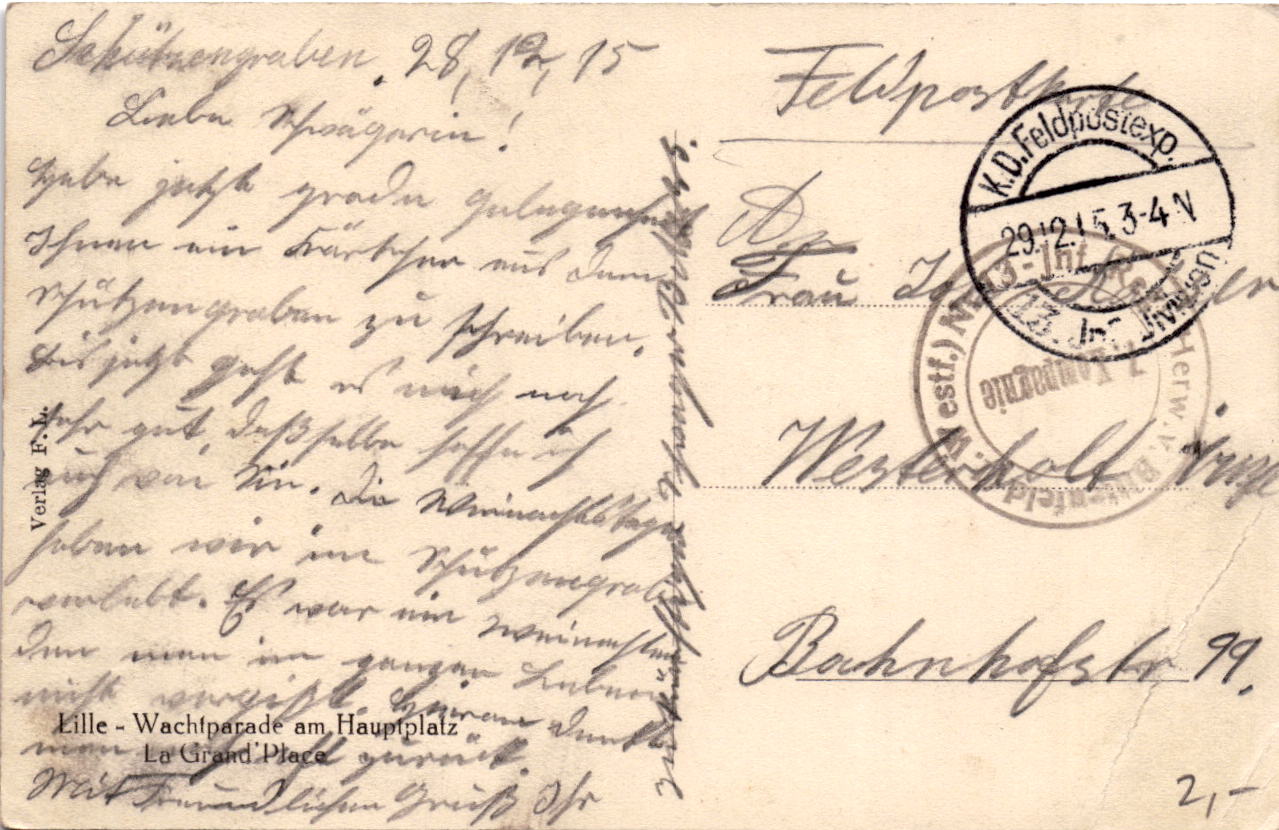 Schützengraben, 28, 12, 15
Liebe Schwägerin!
Habe jetzt grade Gelegenheit
Ihnen ein Kärtchen aus dem
Schützengraben zu schreiben.
Bis jetzt geht es mich noch
sehr gut, daßselbe hoffe ich
auch von Sie. Die Weinachtstage
haben wir im Schützengraben
verlebt. Es war ein Weinachten
den man im ganzen Leben
nicht vergißt. Hieran denkt
man zurück.
Mit Freundlichen Gruß Ihr
Schwager
Verlag F. L.
Lille - Wachtparade am Hauptplatz
La Grand'Place
Feldpostkarte
K.D. Feldpostexp.
29.12.15. 3-4 N
13. Inf. Division
Inf. Regt. Herw. v. Bittenfeld (1. Westf.) Nr. 13
7. Kompagnie
An
Frau
Westerholt
Bahnhofstr 99.
2,-